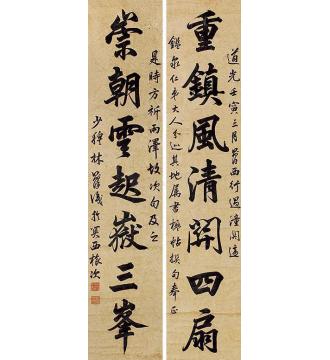 道光壬寅三月望西行過潼關適
重鎮風清開四扇
鑑泉仁弟大人分巡其地屬書楹帖撰句奉正
是時方祈雨澤故次句及之
崇朝雲起嶽三峯
少穆林則徐